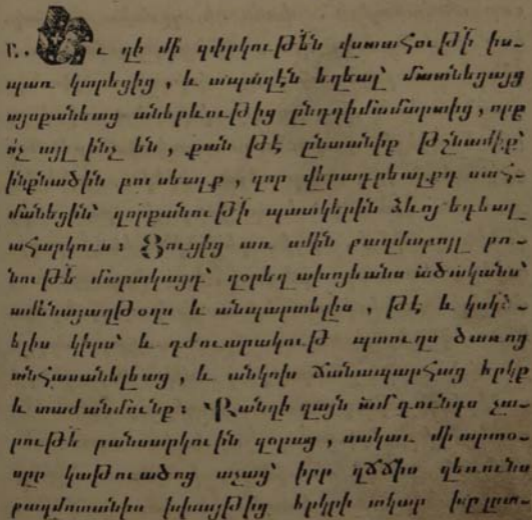 Ւ. Եւ զի մի զփրկութեն վստահութի իս-
պառ կարեցից, և ապաղէն եղեալ մատնեցայց
այսքանեաց աներևութից ընդդիմամարտից, որք
ոչ այլ ինչ են, քան թէ ընտանիք թշնամիք
ինքնածին բուսեալք, զոր վերագրեալքդ սահ-
մանեցին՝ զորքանութի պատկերին ձևոյ եղեալ
ահարկուս։ Ցուցից առ ամին բաղմարոյլ բռ-
նութե մարտկացդ՝ զօրեղ ախոյեանս
ամենայաղթօղս և անպարտելիս, թէ և կսկծ-
ելիս կիրս՝ և դժուարակութ պտուղս ծառոց
անհասանելեաց, և անկոխ ճանապարհաց երկք
և տաժանմունք։ Քանզի զայն ամ գունդս չա-
րութե բանսարկուին զօրաց, սակաւ մի արտօ-
սրը կաթուածոց աչաց՝ իբր զճճիս զեռունս
բազմոտանիս խխայթից երկրի տկար